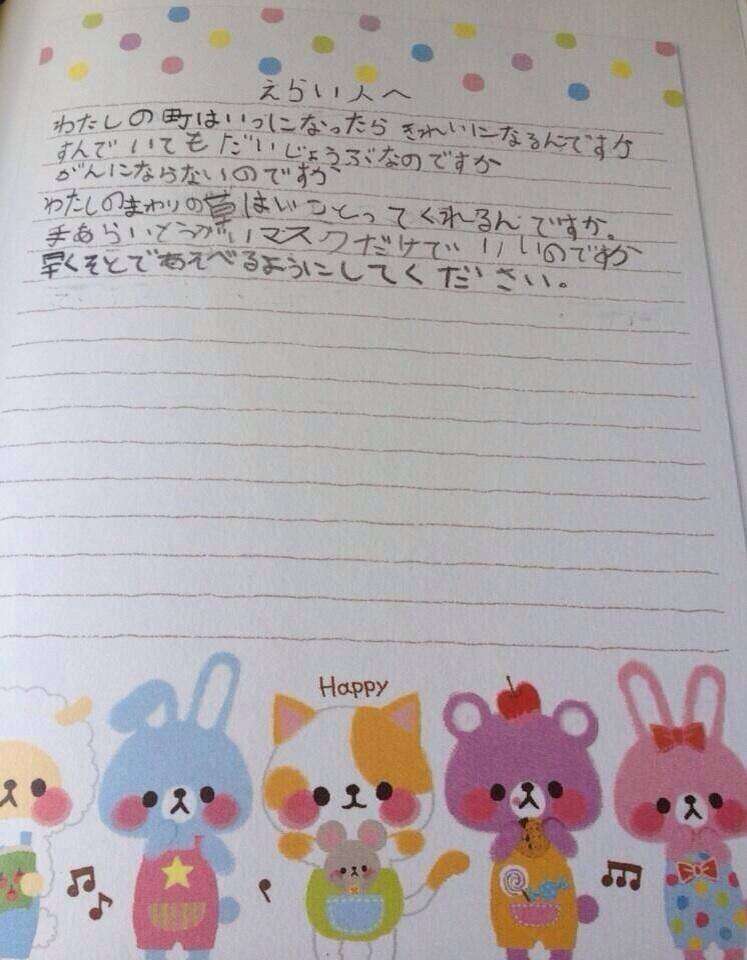 えらい人へ
わたしの町はいつになったらきれいになるんですか
すんでいてもだいじょうぶなのですか
がんにならないのですか
わたしのまわりの草はいことってくれるんですか。
手あらいとうがいマスクだけでいいのですか
早くそとであそべるようにしてください。
Happy